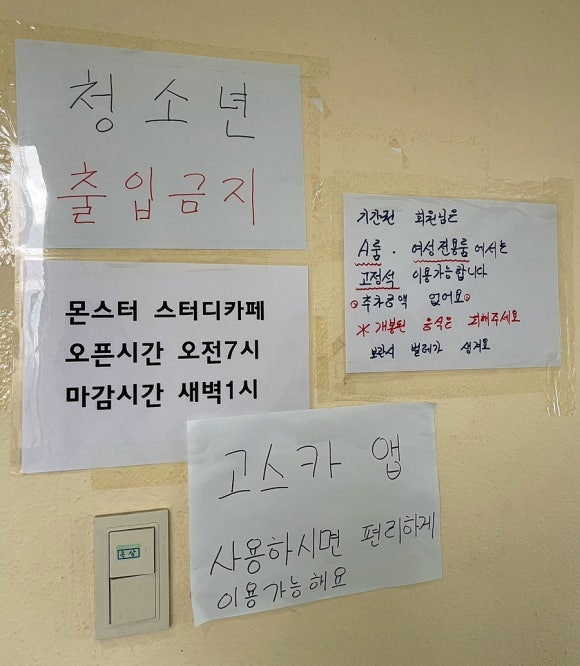 청소년
출입금지
몬스터 스터디카페
오픈시간 오전7시
마감시간 새벽1시
기간권 회원님은
A룸. 여성전용룸에서는
고정석 이용가능합니다
추가금액 없어요
※ 개봉된 음식은 피해주세요
보관시 벌레가 생겨요
고스카 앱
사용하시면 편리하게
이용가능해요